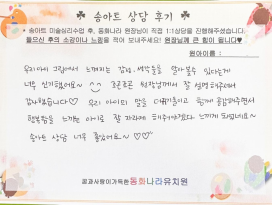 ☘ 송아트 상담 후기 ☘
* 송아트 미술심리수업 후, 동화나라 원장님이 직접 1:1상담을 진행해주셨습니다.
들으신 후의 소감이나 느낌을 적어 보내주세요! 원장님께 큰 힘이 됩니다♥
원아이름 :
우리아이 그림에서 느껴지는 감정, 생각들을 알아볼수 있다는게
너무 신기했어요~ ^^ 조근조근 원장님께서 잘 설명해주셔서
감사했습니다♡ 우리 아이의 맘을 더 헤아리고 함께 공감해주면서
행복함을 느끼는 아이로 잘 자라게 해주어야겠다 느끼게 되네요~
송아트 상담 너무 좋았어요~♡♡
꿈과사랑이가득한동화나라유치원